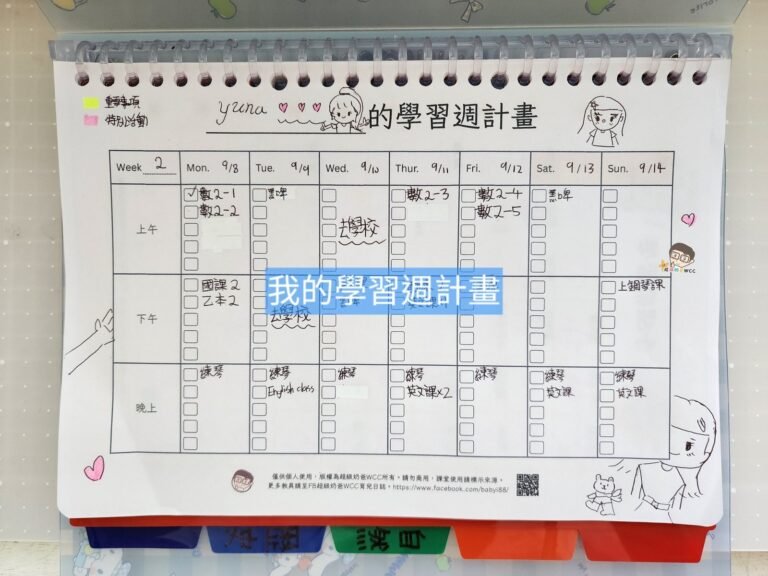 重要事項
特別活動
yuna
的學習週計畫
Week 2 Mon. 9/8 Tue. 9/9 Wed. 9/10 Thur. 9/11 Fri. 9/12 Sat. 9/13 Sun. 9/14
上午
數2-1
數2-2
去學校
數2-3
數2-4
數2-5
我的學習週計畫
下午
國課2
乙本2
去學校
上鋼琴課
晚上
練琴 練琴 練琴 練琴 練琴 練琴 練琴
English class 英文課×2 英文課 英文課
僅供個人使用，版權為超級奶爸WCC所有。請勿商用，課堂使用請標示來源。
更多教具請至FB超級奶爸WCC育兒日誌。https://www.facebook.com/babyi88/
自然